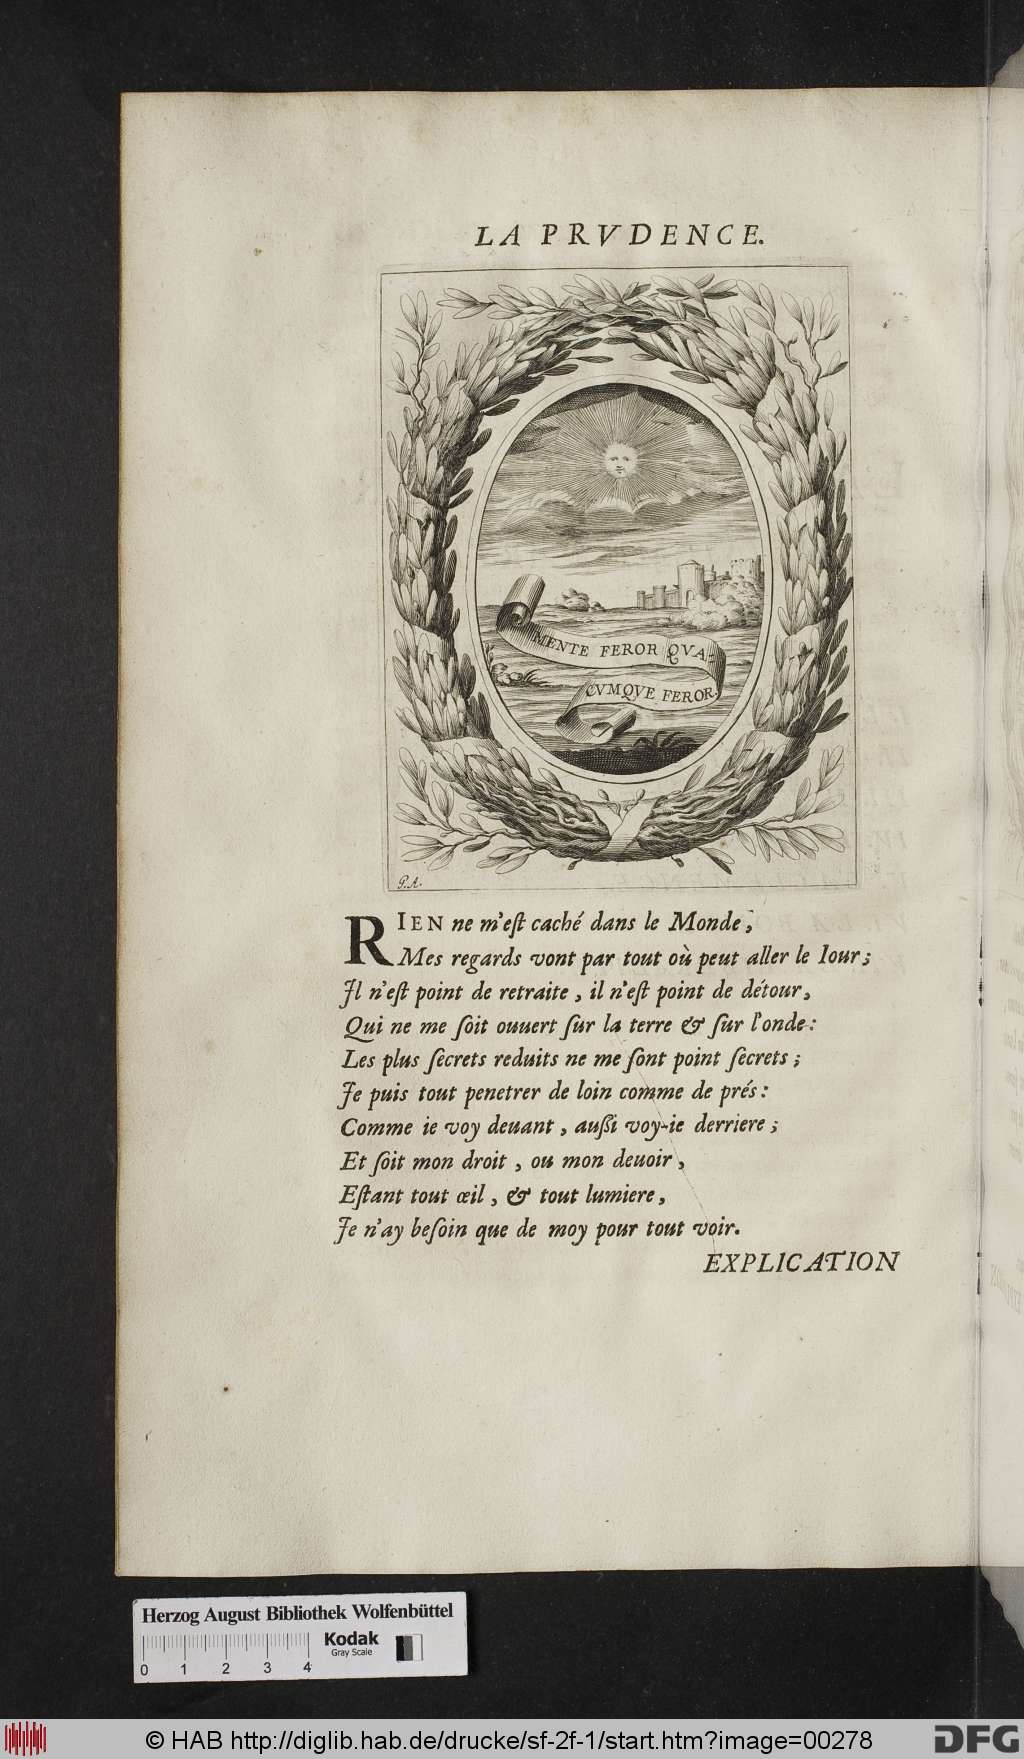 LA PRVDENCE.
MENTE FEROR QVA-
CVMQVE FEROR.
P.A.
RIEN ne m'eſt caché dans le Monde,
Mes regards vont par tout où peut aller le Iour;
Il n'eſt point de retraite, il n'eſt point de détour,
Qui ne me ſoit ouuert ſur la terre & ſur l'onde:
Les plus ſecrets reduits ne me ſont point ſecrets;
Je puis tout penetrer de loin comme de prés:
Comme ie voy deuant, auſſi voy-ie derriere;
Et ſoit mon droit, ou mon deuoir,
Eſtant tout œil, & tout lumiere,
Je n'ay beſoin que de moy pour tout voir.
EXPLICATION
Herzog August Bibliothek Wolfenbüttel
Kodak
Gray Scale
0 1 2 3 4
© HAB http://diglib.hab.de/drucke/sf-2f-1/start.htm?image=00278
DFG